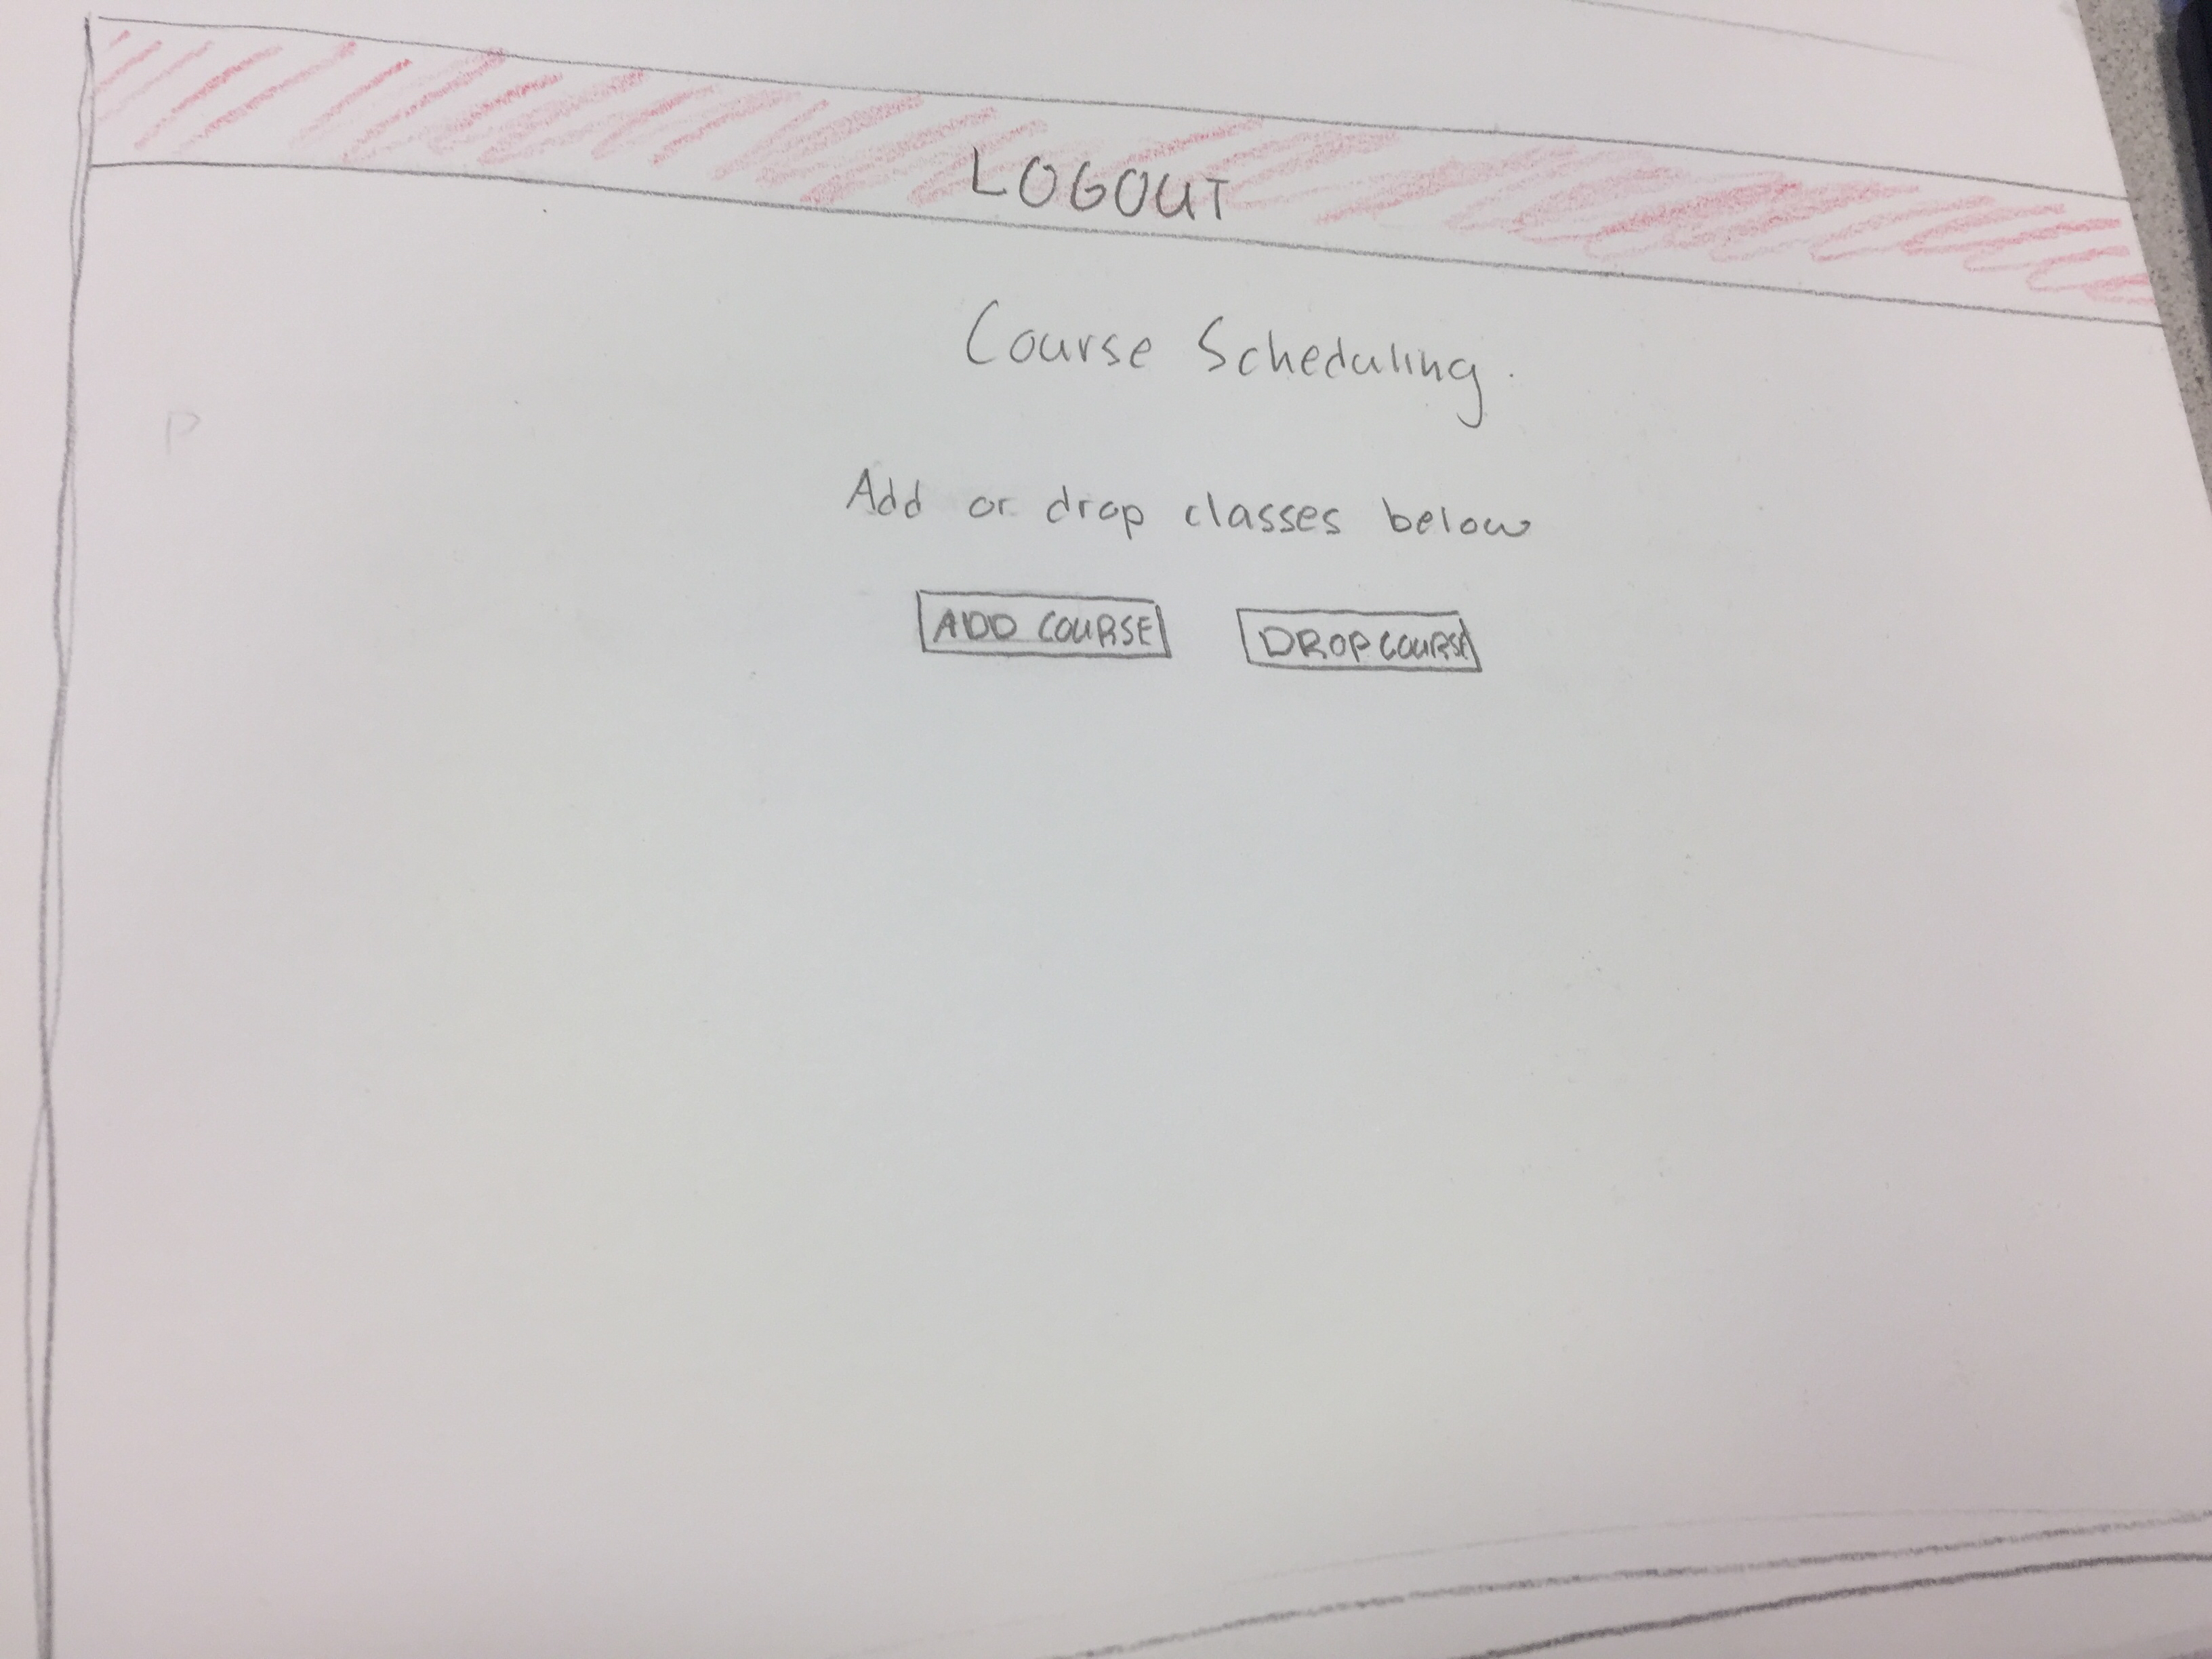 LOGOUT
Course Scheduling.
Add or drop classes below
ADD COURSE DROP COURSE